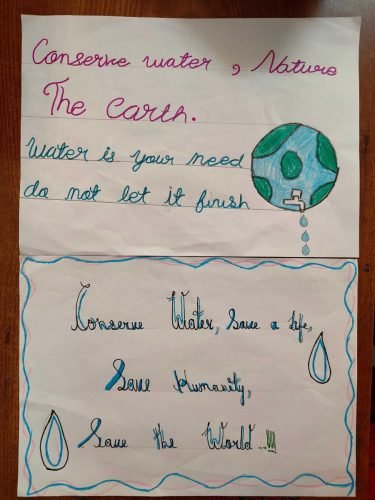 Conserve water, Nature
The Earth.
Water is your need
do not let it finish
Conserve Water, Save a life,
Save Humanity,
Save the World...!!!